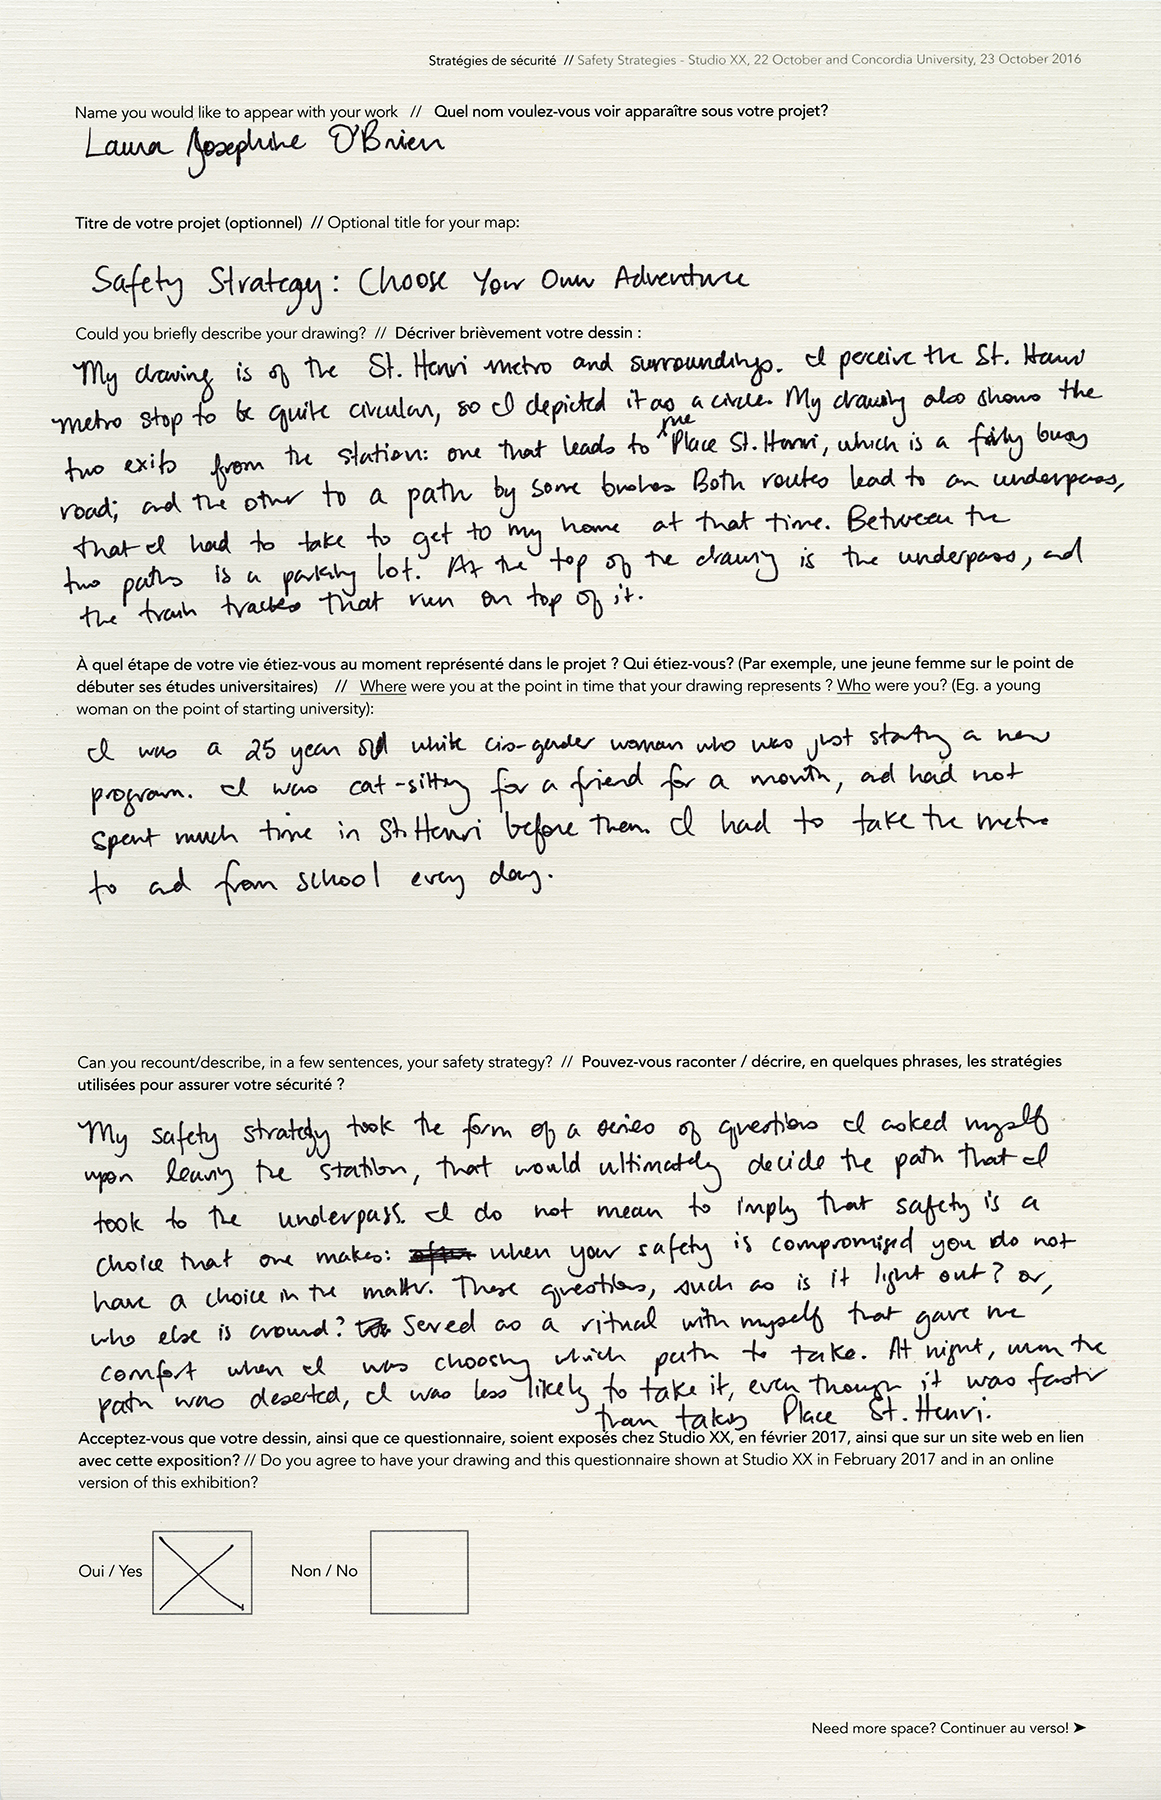 Stratégies de sécurité // Safety Strategies - Studio XX, 22 October and Concordia University, 23 October 2016
Name you would like to appear with your work // Quel nom voulez-vous voir apparaître sous votre projet?
Laura Josephine O'Brien
Titre de votre projet (optionnel) // Optional title for your map:
Safety Strategy: Choose Your Own Adventure
Could you briefly describe your drawing? // Décriver brièvement votre dessin :
My drawing is of the St. Henri metro and surroundings. I perceive the St. Henri
metro stop to be quite circular, so I depicted it as a circle. My drawing also shows the
two exits from the station: one that leads to the Place St. Henri, which is a fairly busy
road; and the other to a path by some bushes. Both routes lead to an underpass,
that I had to take to get to my home at that time. Between the
two paths is a parking lot. At the top of the drawing is the underpass, and
the train tracks that run on top of it.
À quel étape de votre vie étiez-vous au moment représenté dans le projet ? Qui étiez-vous? (Par exemple, une jeune femme sur le point de
débuter ses études universitaires) // Where were you at the point in time that your drawing represents ? Who were you? (Eg. a young
woman on the point of starting university):
I was a 25 year old white cis-gender woman who was just starting a new
program. I was cat-sitting for a friend for a month, and had not
spent much time in St. Henri before then. I had to take the metro
to and from school every day.
Can you recount/describe, in a few sentences, your safety strategy? // Pouvez-vous raconter / décrire, en quelques phrases, les stratégies
utilisées pour assurer votre sécurité ?
My safety strategy took the form of a series of questions I asked myself
upon leaving the station, that would ultimately decide the path that I
took to the underpass. I do not mean to imply that safety is a
choice that one makes: when your safety is compromised you do not
have a choice in the matter. These questions, such as is it light out? or,
who else is around? served as a ritual with myself that gave me
comfort when I was choosing which path to take. At night, when the
path was deserted, I was less likely to take it, even though it was faster
than taking Place St. Henri.
Acceptez-vous que votre dessin, ainsi que ce questionnaire, soient exposés chez Studio XX, en février 2017, ainsi que sur un site web en lien
avec cette exposition? // Do you agree to have your drawing and this questionnaire shown at Studio XX in February 2017 and in an online
version of this exhibition?
Oui / Yes Non / No
Need more space? Continuer au verso! ➤